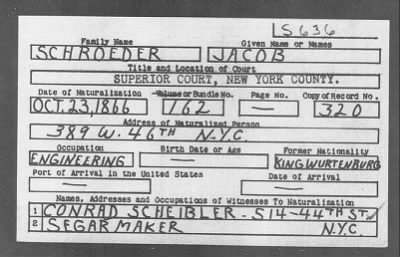 S636
Family Name Given Name or Names
SCHROEDER JACOB
Title and Location of Court
SUPERIOR COURT, NEW YORK COUNTY.
Date of Naturalization Volume or Bundle No. Page No. Copy of Record No.
OCT. 23, 1866 162 — 320
Address of Naturalized Person
389 W. 46TH N.Y.C.
Occupation Birth Date or Age Former Nationality
ENGINEERING — KING WURTENBURG
Port of Arrival in the United States Date of Arrival
— —
Names, Addresses and Occupations of Witnesses To Naturalization
1 CONRAD SCHEIBLER - 514-44TH ST.
2 SEGAR MAKER N.Y.C.